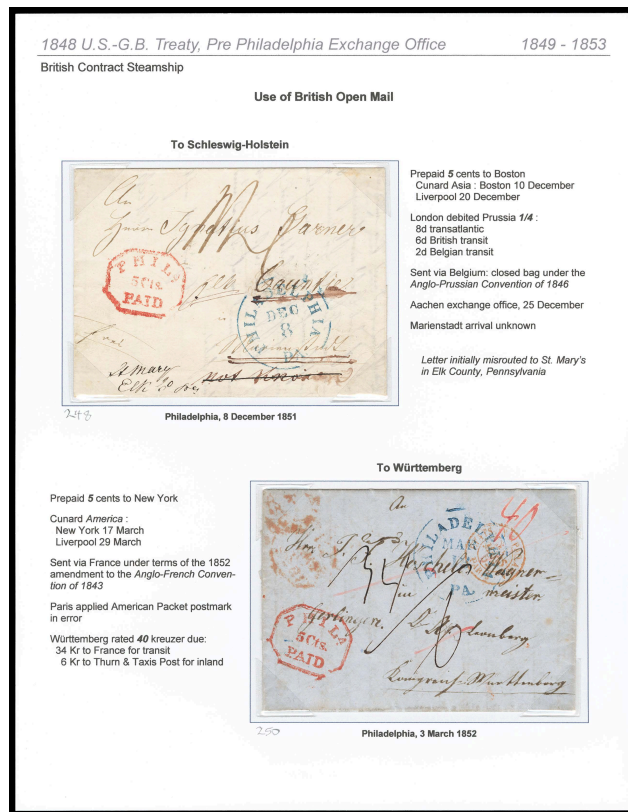 1848 U.S.-G.B. Treaty, Pre Philadelphia Exchange Office 1849 - 1853
British Contract Steamship
Use of British Open Mail
To Schleswig-Holstein
An
Herrn Ignatius Garner
PHILA
5 Cts.
PAID
Elk County
PHILADELPHIA
DEC
8
PA
St Mary
Elk Co
not known
248
Philadelphia, 8 December 1851
Prepaid 5 cents to Boston
Cunard Asia : Boston 10 December
Liverpool 20 December
London debited Prussia 1/4 :
8d transatlantic
6d British transit
2d Belgian transit
Sent via Belgium: closed bag under the
Anglo-Prussian Convention of 1846
Aachen exchange office, 25 December
Marienstadt arrival unknown
Letter initially misrouted to St. Mary's
in Elk County, Pennsylvania
To Württemberg
Prepaid 5 cents to New York
Cunard America :
New York 17 March
Liverpool 29 March
Sent via France under terms of the 1852
amendment to the Anglo-French Conven-
tion of 1843
Paris applied American Packet postmark
in error
Württemberg rated 40 kreuzer due:
34 Kr to France for transit
6 Kr to Thurn & Taxis Post for inland
An
40
PHILADELPHIA
MAR
PA.
Wagner-
meister
in
Gerlingen.
PHILA
5 Cts.
PAID
Königreich Württemberg
250
Philadelphia, 3 March 1852